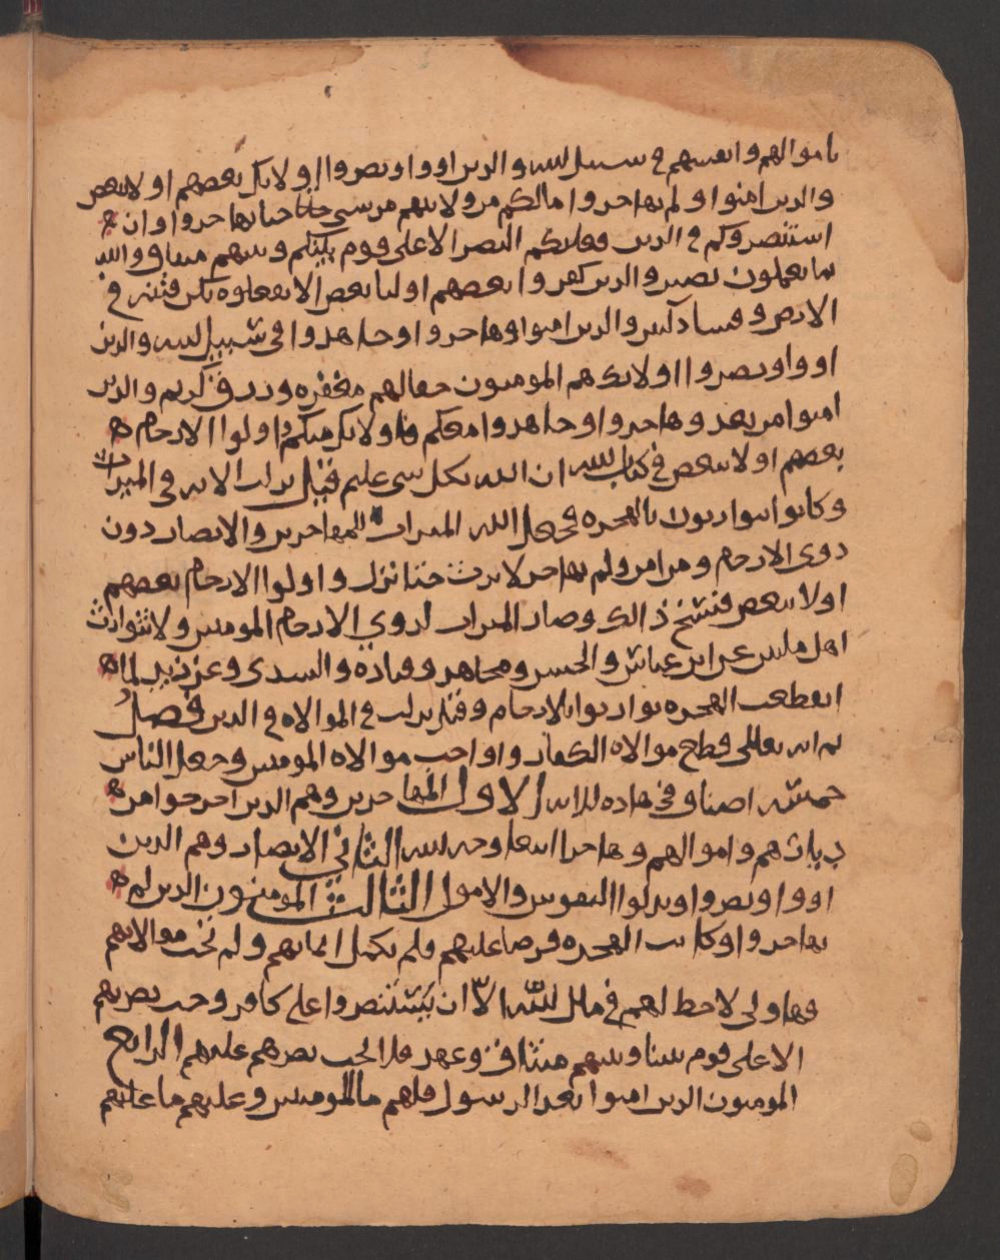 باموالهم وانفسهم في سبيل الله والذين اووا ونصروا اولايك بعضهم اوليا بعض
والذين امنوا ولم يهاجروا ما لكم من ولايتهم من شي حتا يهاجروا وان
استنصروكم في الدين فعليكم النصر الا على قوم بينكم وبينهم ميثاق والله
بما تعملون بصير والذين كفروا بعضهم اوليا بعض الا تفعلوه تكن فتنه في
الارض وفساد كبير والذين امنوا وهاجروا وجاهدوا في سبيل الله والذين
اووا ونصروا اولايك هم المومنون حقا لهم مغفره ورزق كريم والذين
امنوا من بعد وهاجروا وجاهدوا معكم فاولايك منكم واولوا الارحام
بعضهم اولا ببعض في كتاب الله ان الله بكل شي عليم قيل نزلت الايه في الميراث
وكانوا يتوارثون بالهجره فجعل الله الميراث للمهاجرين والانصار دون
ذوي الارحام ومن امن ولم يهاجر لا يرث حتا نزل واولوا الارحام بعضهم
اولا ببعض فنسخ ذالك وصار الميراث لذوي الارحام المومنين ولا يتوارث
اهل ملتين عن ابن عباس والحسن ومجاهد وقتاده والسدي وعن لما
انقطعت الهجره توارثوا بالارحام وقيل نزلت في الموالاه في الدين فصل
ثم انه تعالى قطع موالاه الكفار واوجب موالاه المومنين وجعل الناس
خمسه اصناف في هاذه الايه الاول المهاجرين وهم الذين اخرجوا من
ديارهم واموالهم وهاجرا ابتغا وجه الله الثاني الانصار وهم الذين
اووا ونصروا وبذلوا النفوس والاموال الثالث المومنون الذين لم
يهاجروا وكانت الهجره فرضا عليهم فلم يكمل ايمانهم ولم تجب موالاتهم
فهاولى لاحظ لهم في مال الله الا ان يستنصروا على كافر وجب نصرتهم
الا على قوم بيننا وبينهم ميثاق وعهد فلا يجب نصرهم عليهم الرابع
المومنون الذين امنوا بعد الرسول فلهم ما للمومنين وعليهم ما عليهم